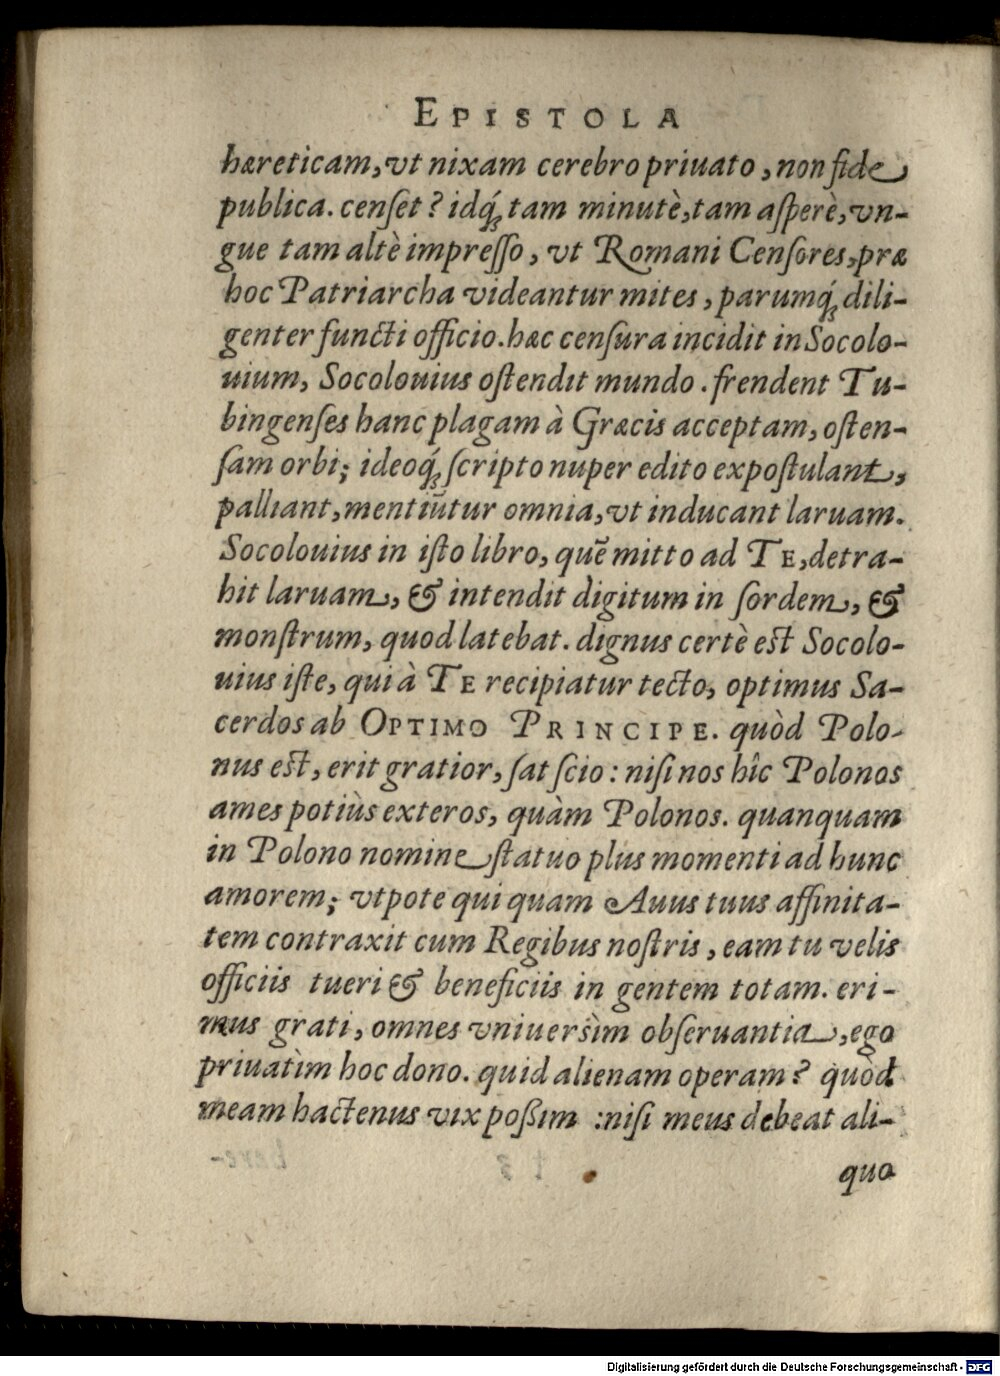 EPISTOLA
hæreticam, vt nixam cerebro priuato, non fide
publica. censet? idq́; tam minutè, tam asperè, vn-
gue tam altè impresso, vt Romani Censores, præ
hoc Patriarcha videantur mites, parumq́; dili-
genter functi officio. hæc censura incidit in Socolo-
uium, Socolouius ostendit mundo. frendent Tu-
bingenses hanc plagam à Græcis acceptam, osten-
sam orbi; ideoq́; scripto nuper edito expostulant,
palliant, mentiūtur omnia, vt inducant laruam.
Socolouius in isto libro, quē mitto ad TE, detra-
hit laruam, & intendit digitum in sordem, &
monstrum, quod latebat. dignus certè est Socolo-
uius iste, qui à TE recipiatur tecto, optimus Sa-
cerdos ab OPTIMO PRINCIPE. quòd Polo-
nus est, erit gratior, sat scio: nisi nos hîc Polonos
ames potiùs exteros, quàm Polonos. quanquam
in Polono nomine statuo plus momenti ad hunc
amorem; vtpote qui quam Auus tuus affinita-
tem contraxit cum Regibus nostris, eam tu velis
officiis tueri & beneficiis in gentem totam. eri-
mus grati, omnes vniuersìm obseruantia, ego
priuatìm hoc dono. quid alienam operam? quòd
meam hactenus vix possim: nisi meus debeat ali-
quo
Digitalisierung gefördert durch die Deutsche Forschungsgemeinschaft - DFG